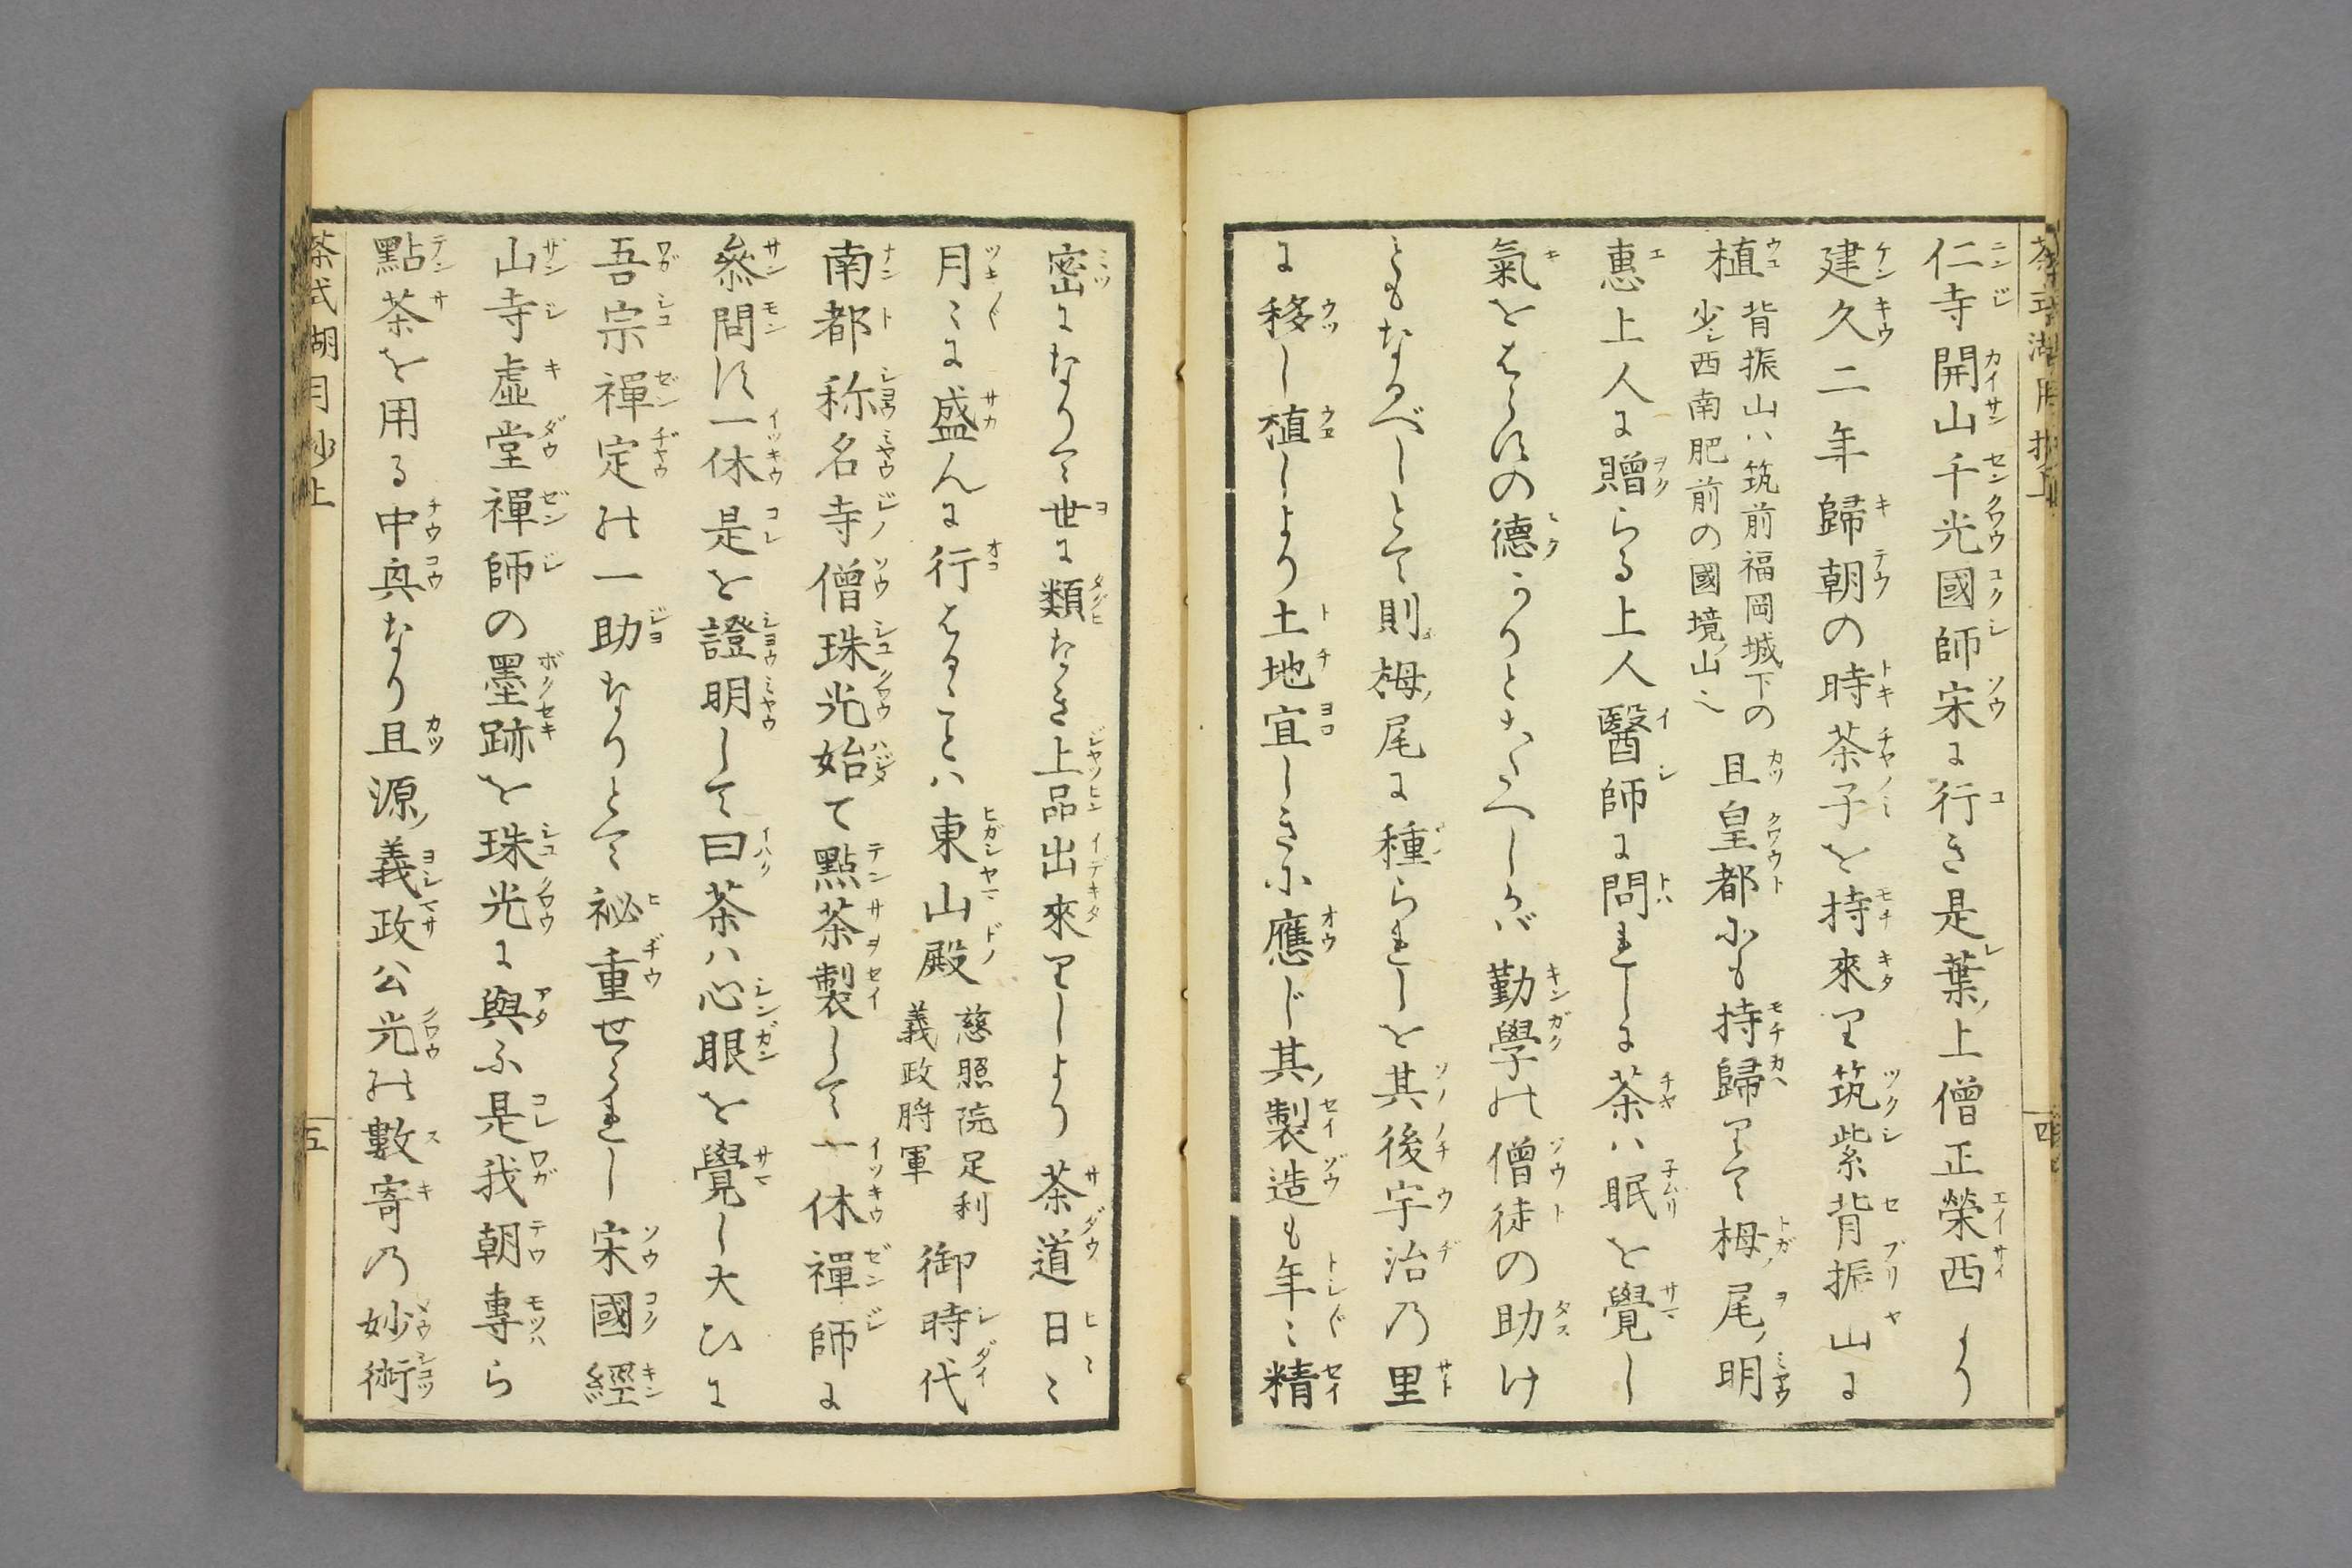 仁寺開山千光國師宋に行き是葉ノ上僧正榮西より
建久二年歸朝の時茶子を持來り筑紫背振山に
植
背振山ハ筑前福岡城下の
少シ西南肥前の國境ノ山也
且皇都にも持歸りて栂ノ尾ノ明
惠上人に贈らる上人醫師に問れしに茶ハ眠を覺し
氣をはらすの德ありとこたへしかバ勤學の僧徒の助け
ともなるべしとて則栂ノ尾に種られしを其後宇治の里
に移し植しより土地宜しきに應じ其ノ製造も年〻精
密になりて世に類なき上品出來りしより茶道日〻
月〻に盛んに行はるゝことハ東山殿
慈照院足利
義政將軍
御時代
南都称名寺僧珠光始て點茶製して一休禪師に
參問す一休是を證明して曰茶ハ心眼を覺し大ひに
吾宗禪定の一助なりとて祕重せられし宋國經
山寺虛堂禪師の墨跡を珠光に與ふ是我朝專ら
點茶を用る中興なり且源ノ義政公光の數寄の妙術
茶式湖月抄上
五